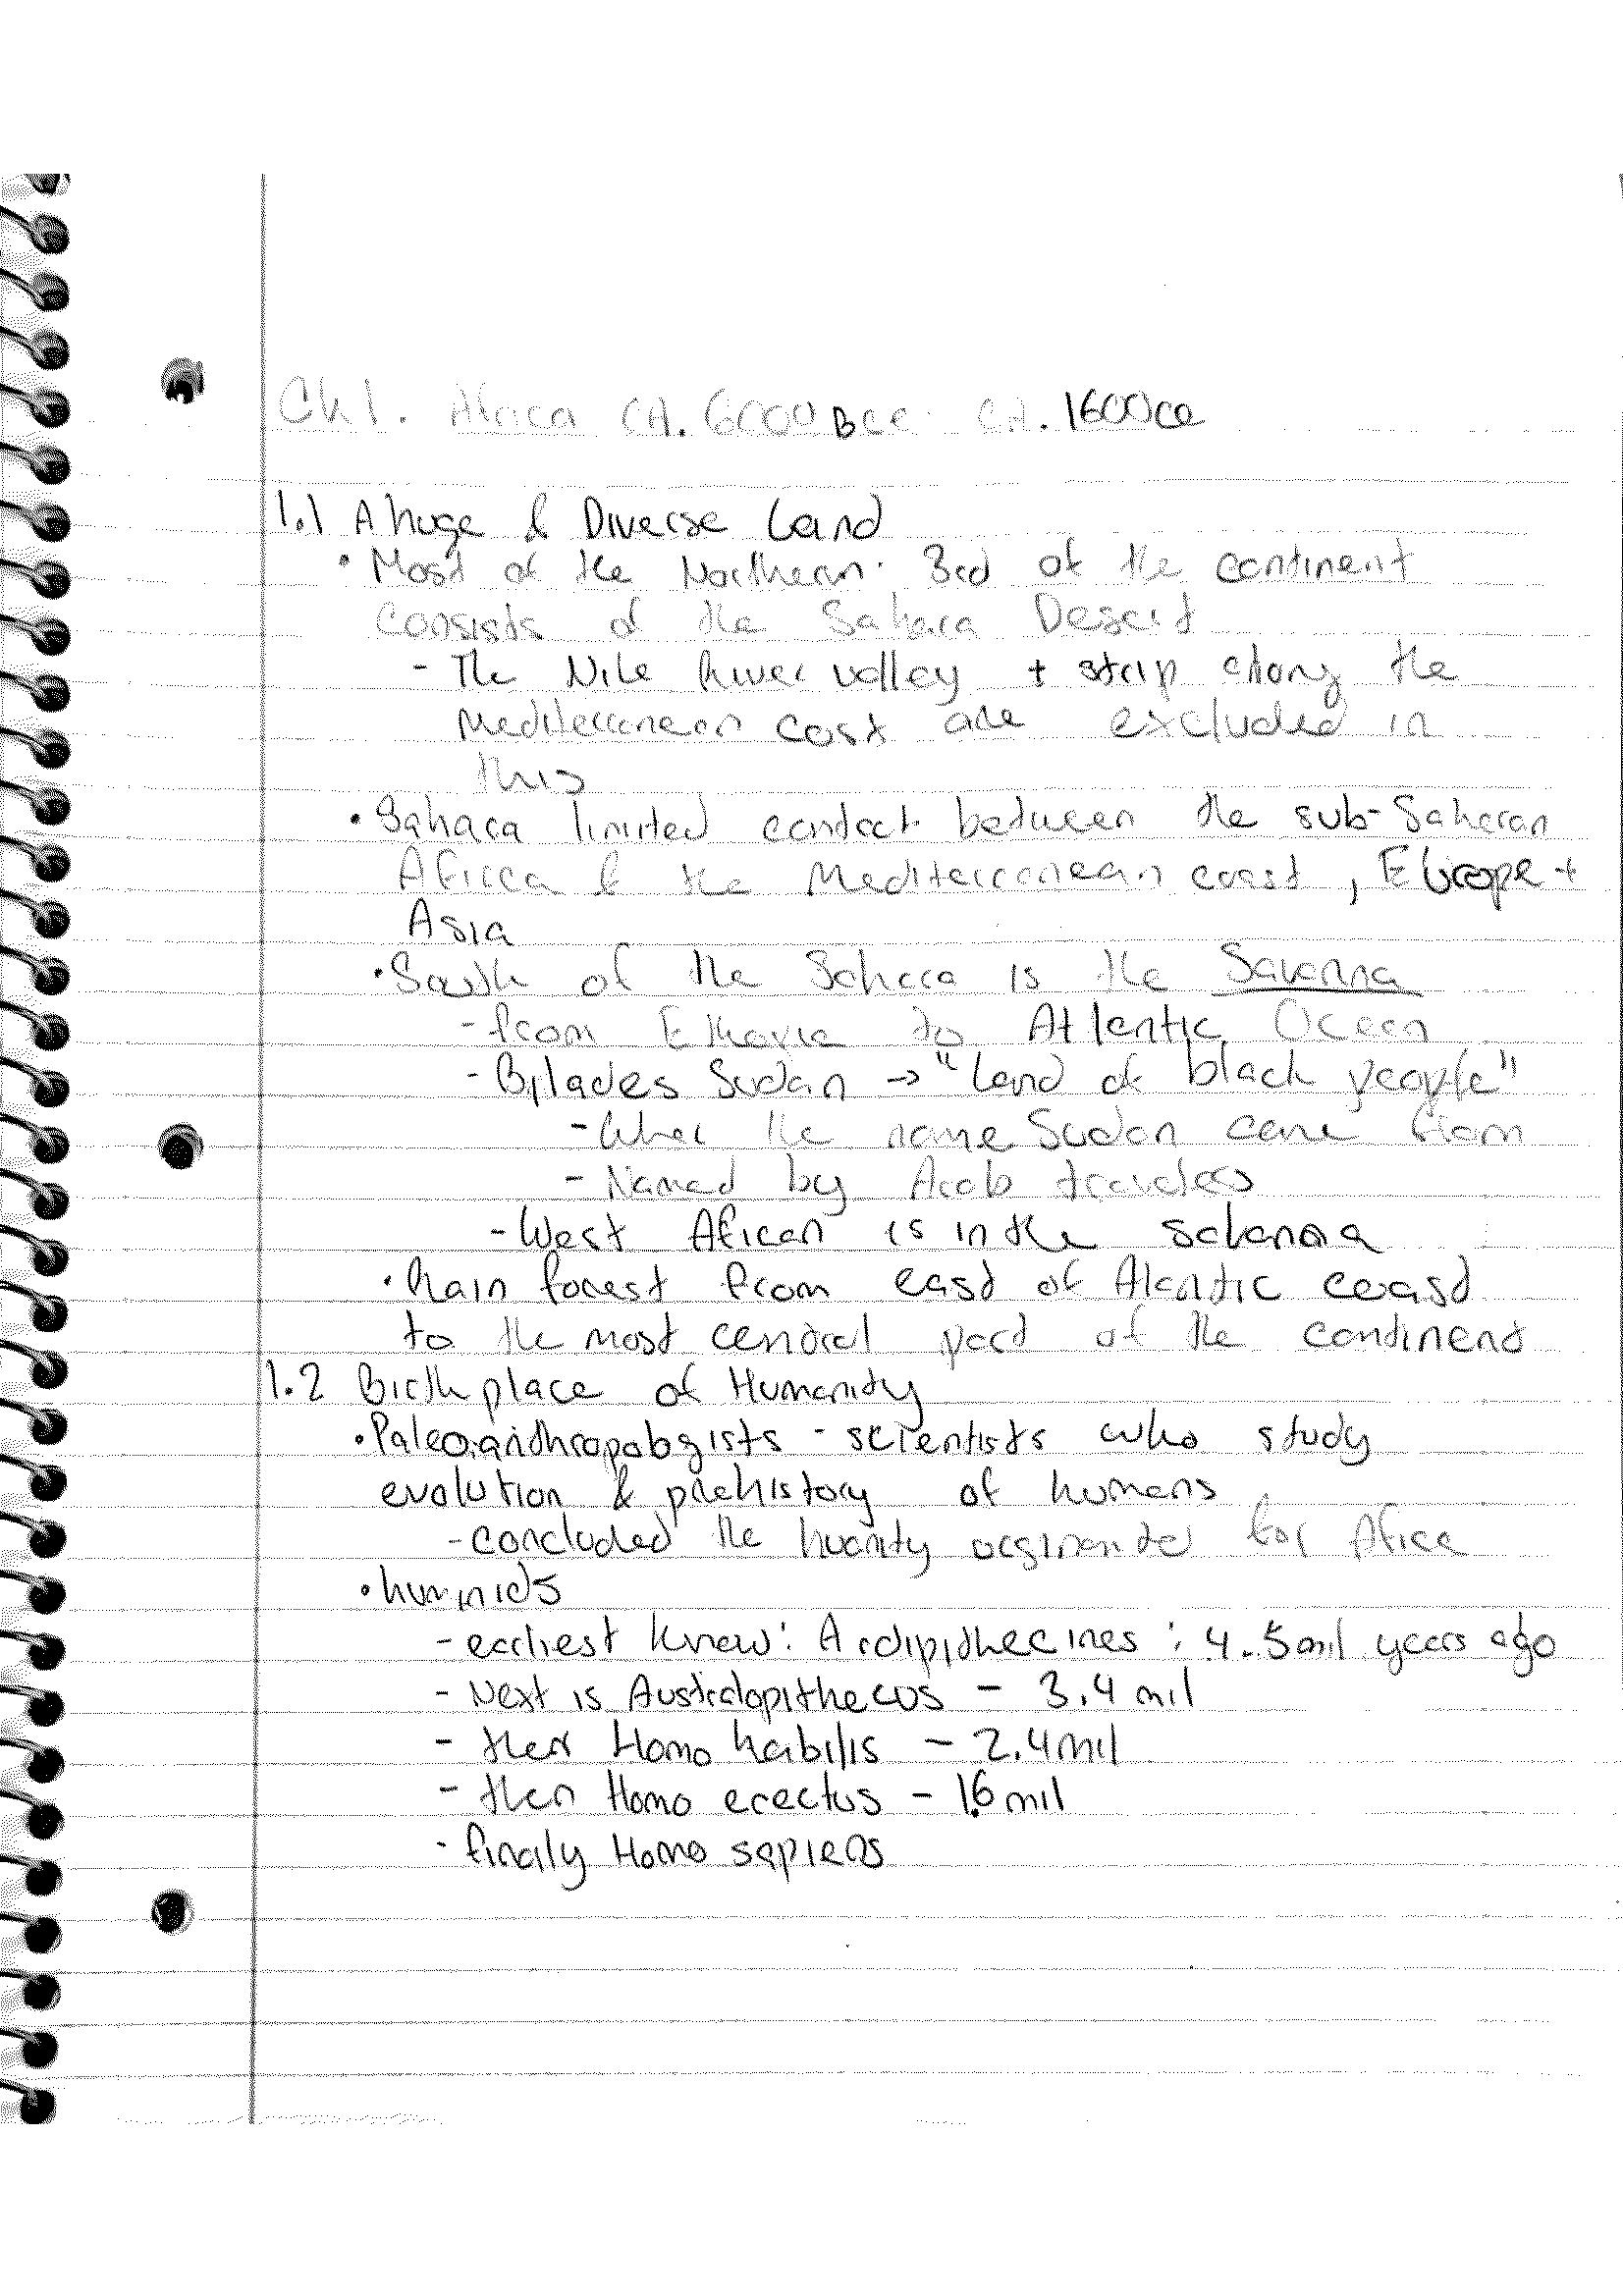 Ch 1. Africa CA. 6000 BCE - CA. 1600CE
1.1 A huge & Diverse Land
• Most of the Northern 3rd of the continent
consists of the Sahara Desert
- The Nile River valley + strip along the
Mediterranean cost are excluded in
this
• Sahara limited contact between the sub-Saharan
Africa & the Mediterranean coast, Europe +
Asia
• South of the Sahara is the Savanna
- from Ethopia to Atlantic Ocean
- Bilades Sudan → "Land of black people"
- Wher the name Sudan came from
- Named by Arab travelers
- West African is in the savanna
• Rain forest from east of Alantic coast
to the most central part of the continent
1.2 Birth place of Humanity
• Paleoanthropologists - scientists who study
evolution & prehistory of humans
- concluded the huanity orginanted for Africa
• huminids
- earliest know: Ardipithecines: 4.5 mil years ago
- Next is Australopithecus - 3.4 mil
- then Homo habilis - 2.4 mil
- then Homo erectus - 1.6 mil
- finaly Homo sapiens